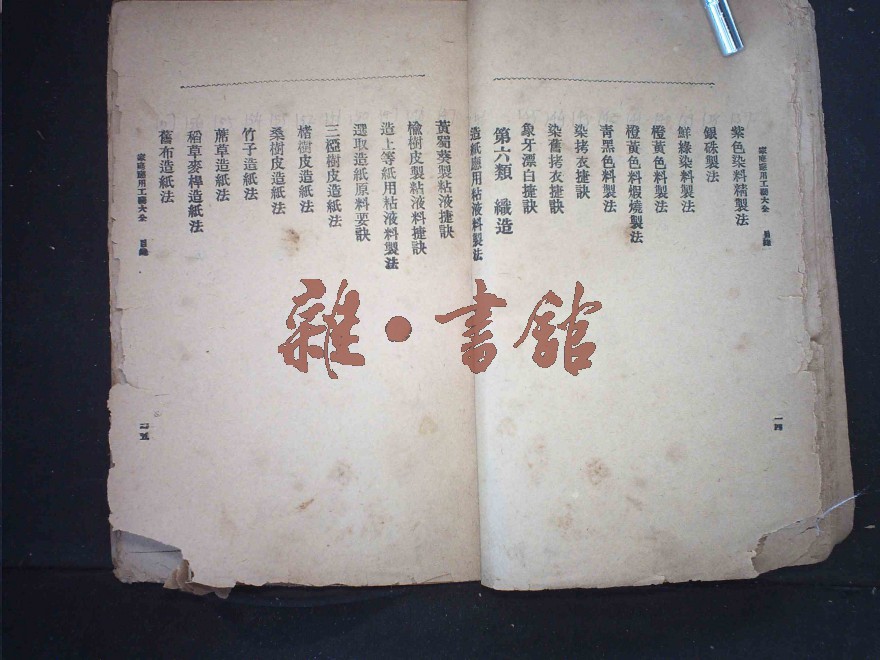 家庭應用工藝大全 目錄
一四
紫色染料精製法
銀硃製法
鮮綠染料製法
橙黃色料製法
橙黃色料煆燒製法
青黑色料製法
染拷衣捷訣
染舊拷衣捷訣
象牙漂白捷訣
第六類 織造
造紙應用粘液料製法
黃蜀葵製粘液捷訣
榆樹皮製粘液料捷訣
造上等紙用粘液料製法
選取造紙原料要訣
三椏樹皮造紙法
楮樹皮造紙法
桑樹皮造紙法
竹子造紙法
蔗草造紙法
稻草麥桿造紙法
舊布造紙法
家庭應用工藝大全 目錄
一五
雜·書館